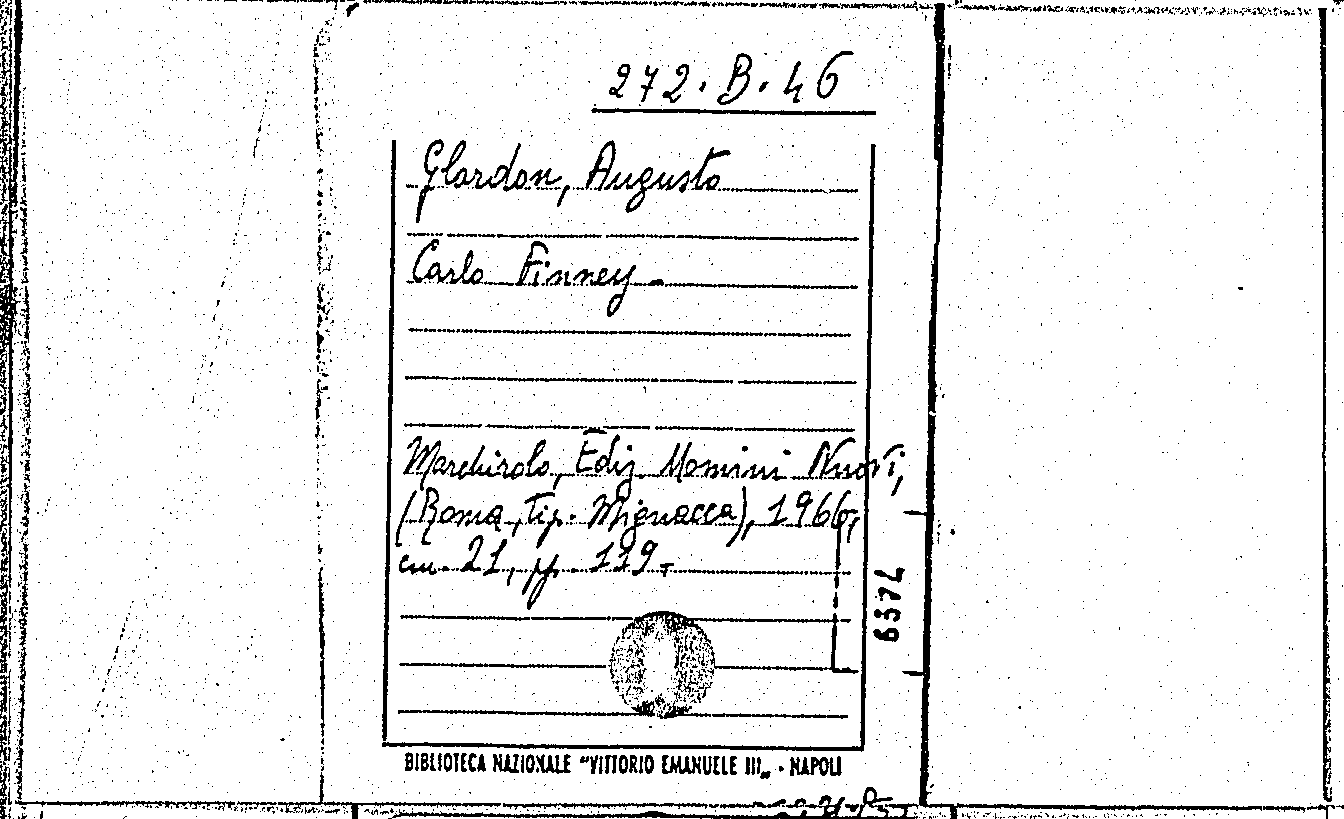 272.B.46
Glardon, Augusto
Carlo Finney -
Marchirolo, Ediz. Uomini Nuovi,
(Roma, tip. Mignacca), 1966,
cm. 21, pp. 119 -
6374
BIBLIOTECA NAZIONALE "VITTORIO EMANUELE III„ - NAPOLI